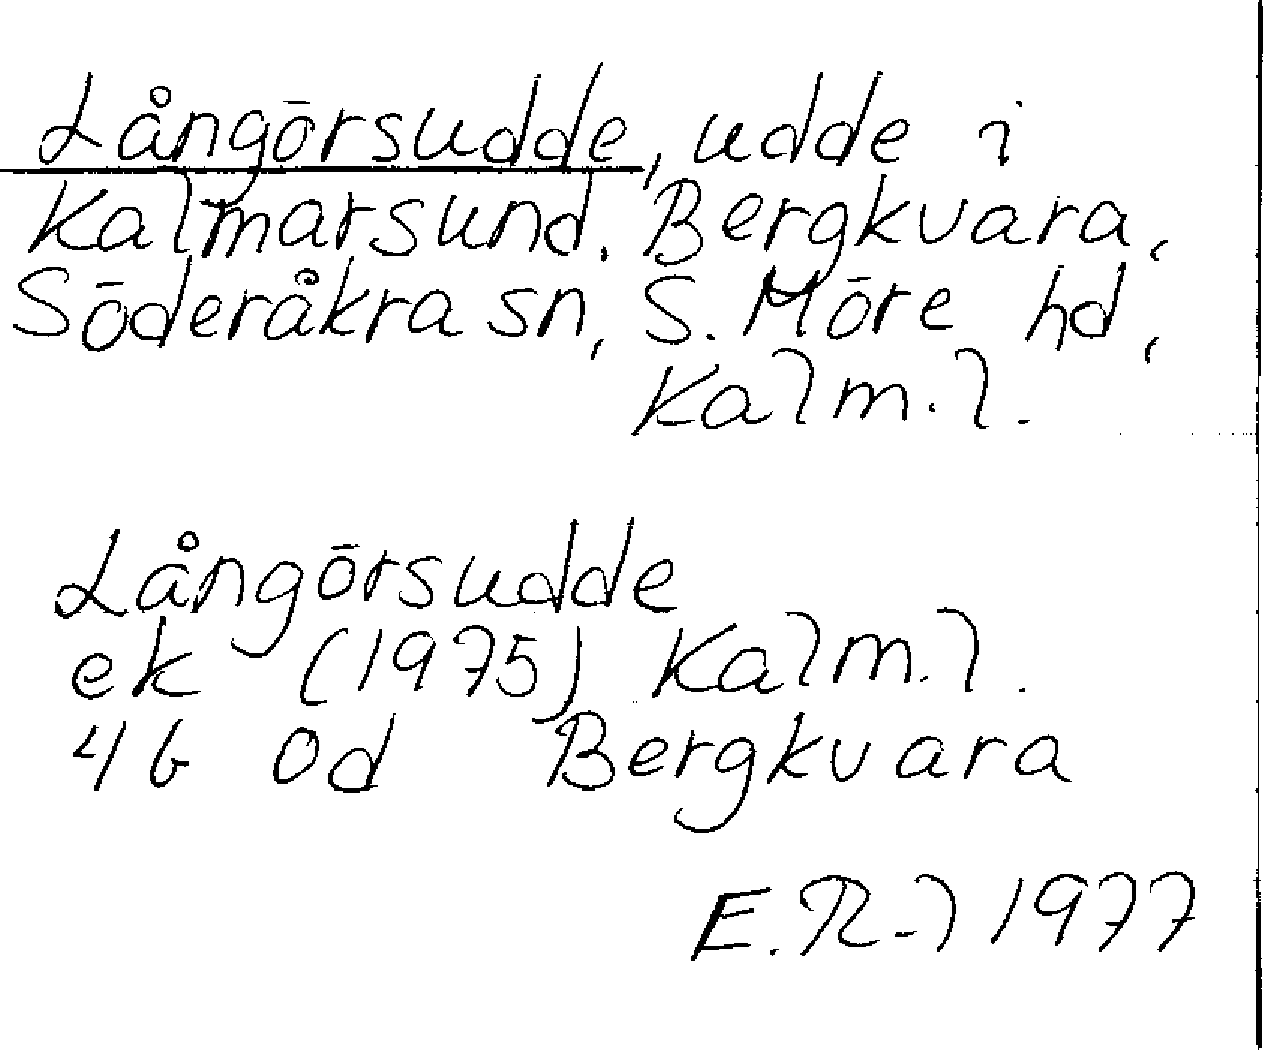 Långörsudde, udde i
Kalmarsund. Bergkvara,
Söderåkra sn, S. Möre hd,
Kalm. l.
Långörsudde
ek (1975) Kalm. l.
4 G 0d Bergkvara
E. R-l 1977